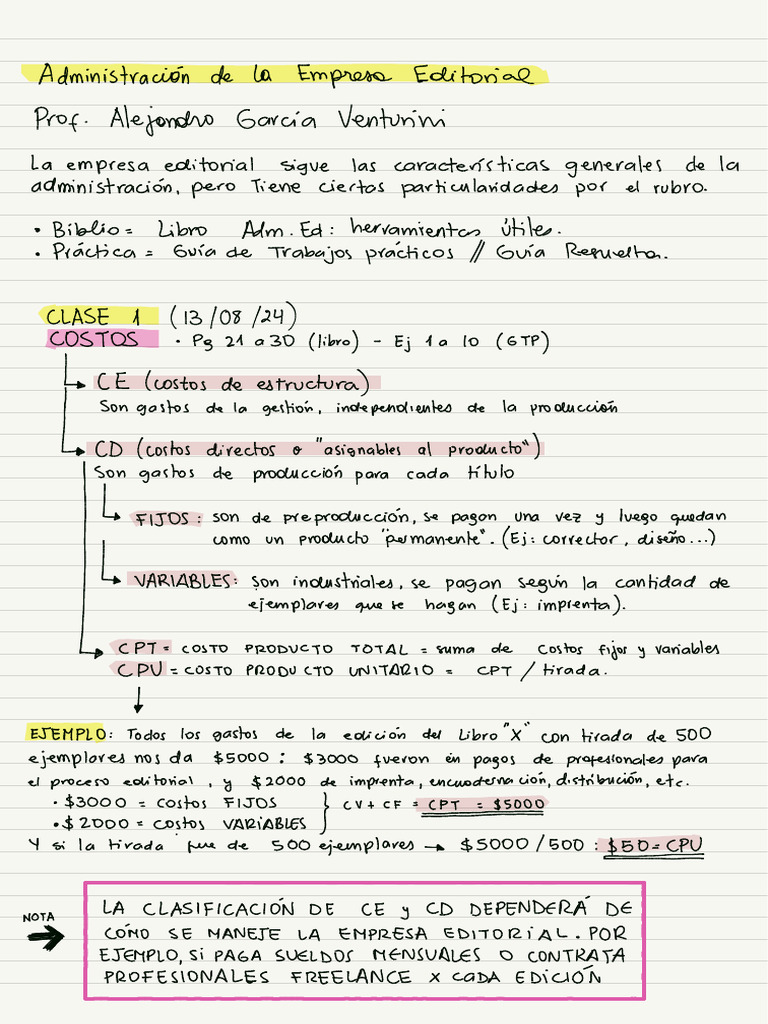 Administración de la Empresa Editorial
Prof. Alejandro García Venturini
La empresa editorial sigue las características generales de la
administración, pero tiene ciertas particularidades por el rubro.
• Biblio = Libro Adm. Ed: herramientas útiles.
• Práctica = Guía de Trabajos prácticos // Guía Resuelta.
CLASE 1 (13/08/24)
COSTOS • Pg 21 a 30 (libro) - Ej 1 a 10 (GTP)
CE (costos de estructura)
Son gastos de la gestión, independientes de la producción
CD (costos directos o "asignables al producto")
Son gastos de producción para cada título
FIJOS: son de preproducción, se pagan una vez y luego quedan
como un producto "permanente". (Ej: corrector, diseño...)
VARIABLES: Son industriales, se pagan según la cantidad de
ejemplares que se hagan (Ej: imprenta).
CPT = COSTO PRODUCTO TOTAL = suma de costos fijos y variables
CPU = COSTO PRODUCTO UNITARIO = CPT / tirada.
EJEMPLO: Todos los gastos de la edición del Libro "X" con tirada de 500
ejemplares nos da $5000: $3000 fueron en pagos de profesionales para
el proceso editorial, y $2000 de imprenta, encuadernación, distribución, etc.
• $3000 = costos FIJOS
• $2000 = costos VARIABLES } CV + CF = CPT = $5000
Y si la tirada fue de 500 ejemplares → $5000/500 : $50 = CPU
NOTA
LA CLASIFICACIÓN DE CE y CD DEPENDERÁ DE
CÓMO SE MANEJE LA EMPRESA EDITORIAL. POR
EJEMPLO, SI PAGA SUELDOS MENSUALES O CONTRATA
PROFESIONALES FREELANCE X CADA EDICIÓN